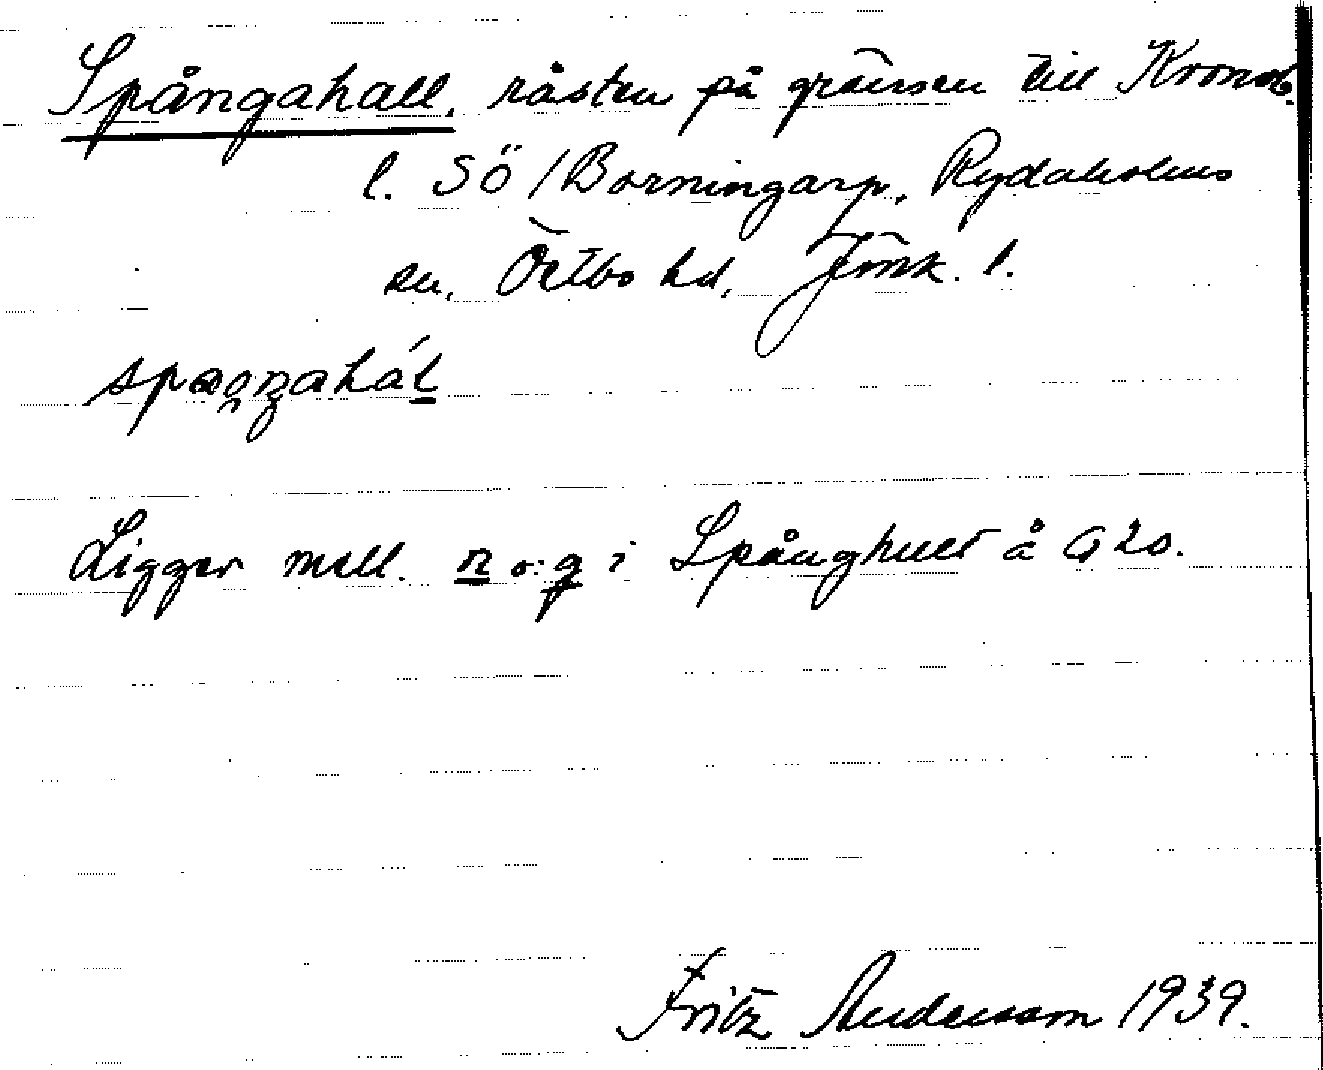 Spångahall, råsten på gränsen till Kronob.
l. SÖ /Borningarp, Rydaholms
sn, Östbo hd, Jmk. l.
Ligger mell. n o. g i Spånghult å G 20.
Fritz Andersson 1939.